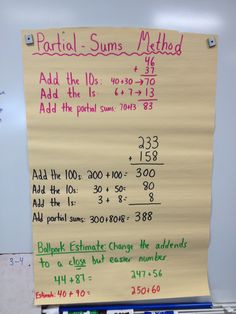 Partial-Sums Method
46
+ 37
Add the 10s: 40+30 → 70
Add the 1s: 6+7 → 13
Add the partial sums: 70+13 83
233
+ 158
Add the 100s: 200+100= 300
Add the 10s: 30+50= 80
Add the 1s: 3+8= 8
Add partial sums: 300+80+8= 388
Ballpark Estimate: Change the addends
to a close but easier number
3-4
44+87= 247+56
Estimate: 40+90= 250+60